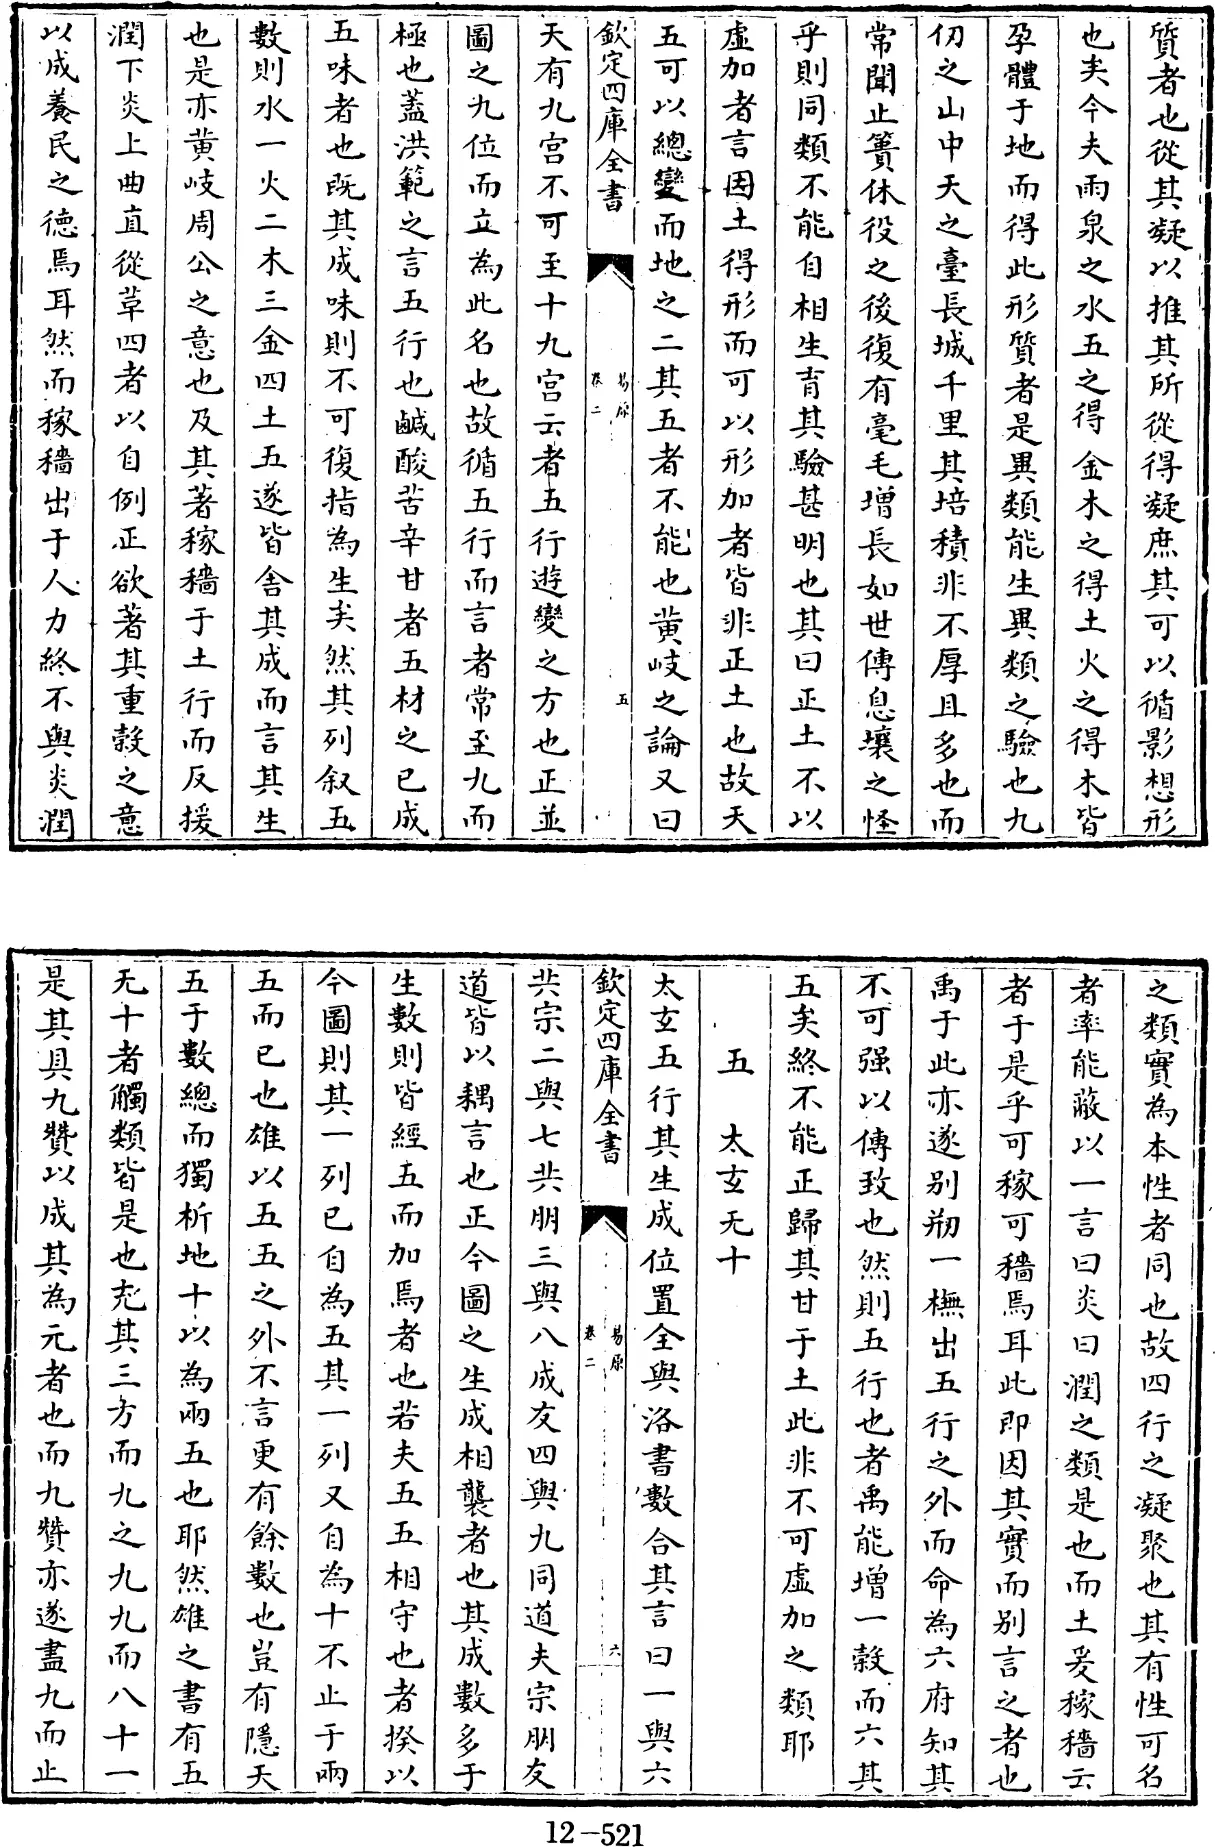 質者也從其凝以推其所從得凝庶其可以循影想形
也矣今夫雨泉之水五之得金木之得土火之得木皆
孕體于地而得此形質者是異類能生異類之驗也九
仞之山中天之臺長城千里其培積非不厚且多也而
常聞止簣休役之後復有毫毛增長如世傳息壤之怪
乎則同類不能自相生育其驗甚明也其曰正土不以
虛加者言因土得形而可以形加者皆非正土也故天
五可以總變而地之二其五者不能也黄岐之論又曰
欽定四庫全書 易原 卷二 五
天有九宫不可至十九宫云者五行遊變之方也正並
圖之九位而立為此名也故循五行而言者常至九而
極也蓋洪範之言五行也鹹酸苦辛甘者五材之已成
五味者也既其成味則不可復指為生矣然其列叙五
數則水一火二木三金四土五遂皆舍其成而言其生
也是亦黄岐周公之意也及其著稼穡于土行而反援
潤下炎上曲直從革四者以自例正欲著其重穀之意
以成養民之德焉耳然而稼穡出于人力終不與炎潤
之類實為本性者同也故四行之凝聚也其有性可名
者率能蔽以一言曰炎曰潤之類是也而土爰稼穡云
者于是乎可稼可穡焉耳此即因其實而别言之者也
禹于此亦遂别剏一橅出五行之外而命為六府知其
不可强以傳致也然則五行也者禹能增一穀而六其
五矣終不能正歸其甘于土此非不可虛加之類耶
五 太玄无十
太玄五行其生成位置全與洛書數合其言曰一與六
欽定四庫全書 易原 卷二 六
共宗二與七共朋三與八成友四與九同道夫宗朋友
道皆以耦言也正今圖之生成相襲者也其成數多于
生數則皆經五而加焉者也若夫五五相守也者揆以
今圖則其一列已自為五其一列又自為十不止于兩
五而已也雄以五五之外不言更有餘數也豈有隱天
五于數總而獨析地十以為兩五也耶然雄之書有五
无十者觸類皆是也充其三方而九之九九而八十一
是其具九贊以成其為元者也而九贊亦遂盡九而止
12-521